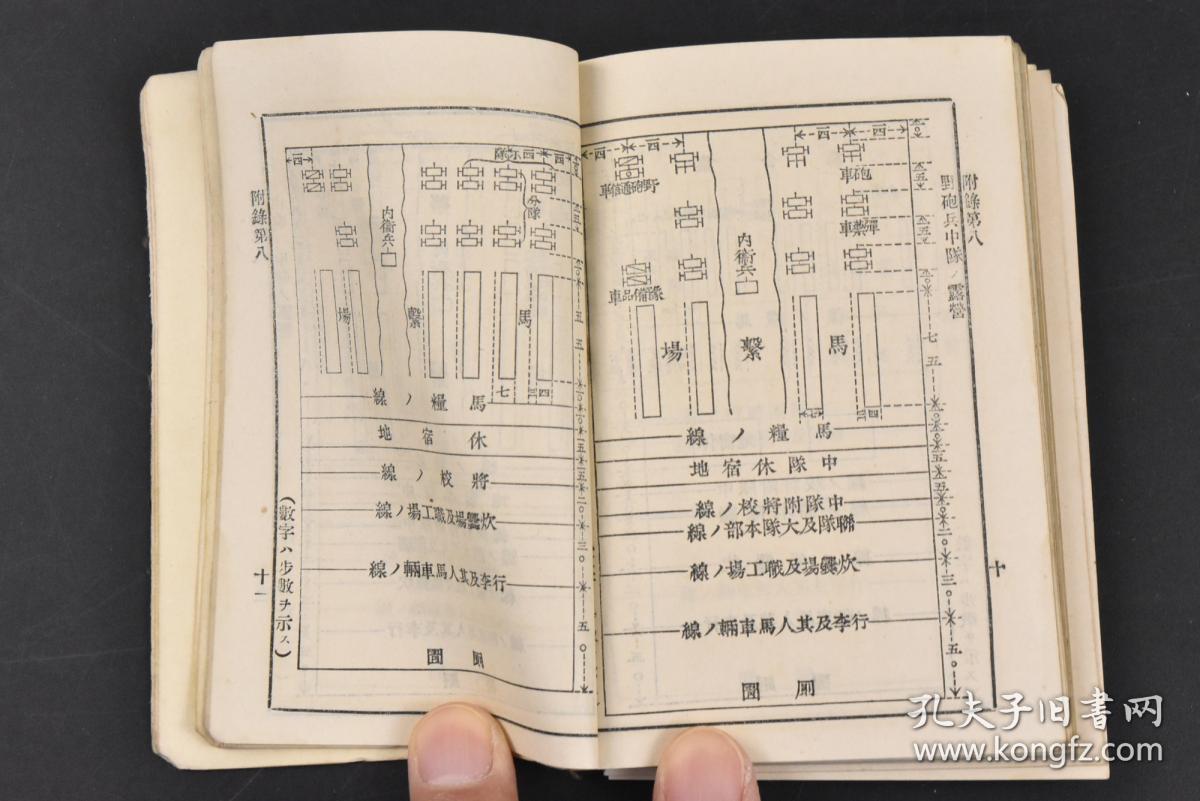 附錄第八
野砲兵中隊ノ露營
砲車
彈藥車
野砲通信車
豫備品車
內衛兵
馬繫場
七五
馬糧ノ線
中隊休宿地
中隊附將校ノ線
聯隊及大隊本部ノ線
炊爨場及職工場ノ線
行李及其人馬車輛ノ線
厠圊
二〇
三〇
五〇
十
分隊
內衛兵
馬繫場
馬糧ノ線
休宿地
將校ノ線
炊爨場及職工場ノ線
行李及其人馬車輛ノ線
厠圊
二〇
三〇
五〇
附錄第八
(數字ハ步數ヲ示ス)
十一
孔夫子旧書网
www.kongfz.com